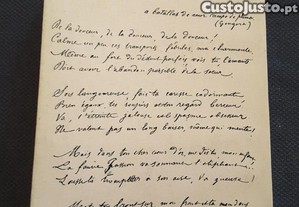 a batallas de amor campo de pluma
(Gongora)
De la douceur, de la douceur, de la douceur !
Calme un peu ces transports fébriles, ma charmante
Même au fort du déduit parfois, vois-tu, l'amante
Doit avoir l'abandon paisible de la sœur.
Sois langoureuse, fais ta caresse endormante
Bien égaux tes soupirs et ton regard berceur
Va, l'étreinte jalouse et le spasme obsesseur
Ne valent pas un long baiser, même qui mente
Mais dans ton cher cœur d'or, me dis-tu, mon enfant
La fauve passion va sonnant l'oliphant
Laisse-la trompetter à son aise, la gueuse !
CustoJusto